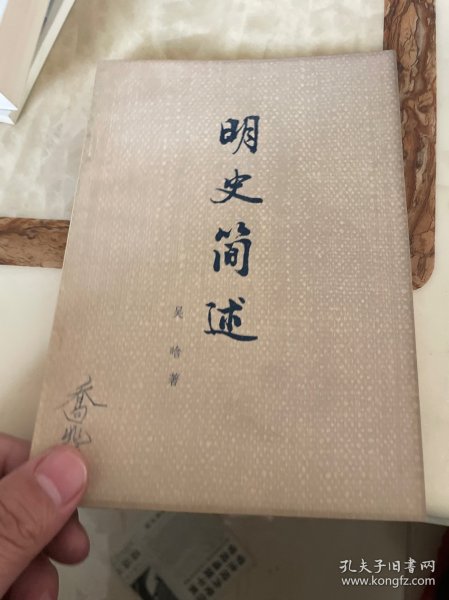 明史简述
吴晗著
乔
孔夫子旧书网
www.kongfz.com